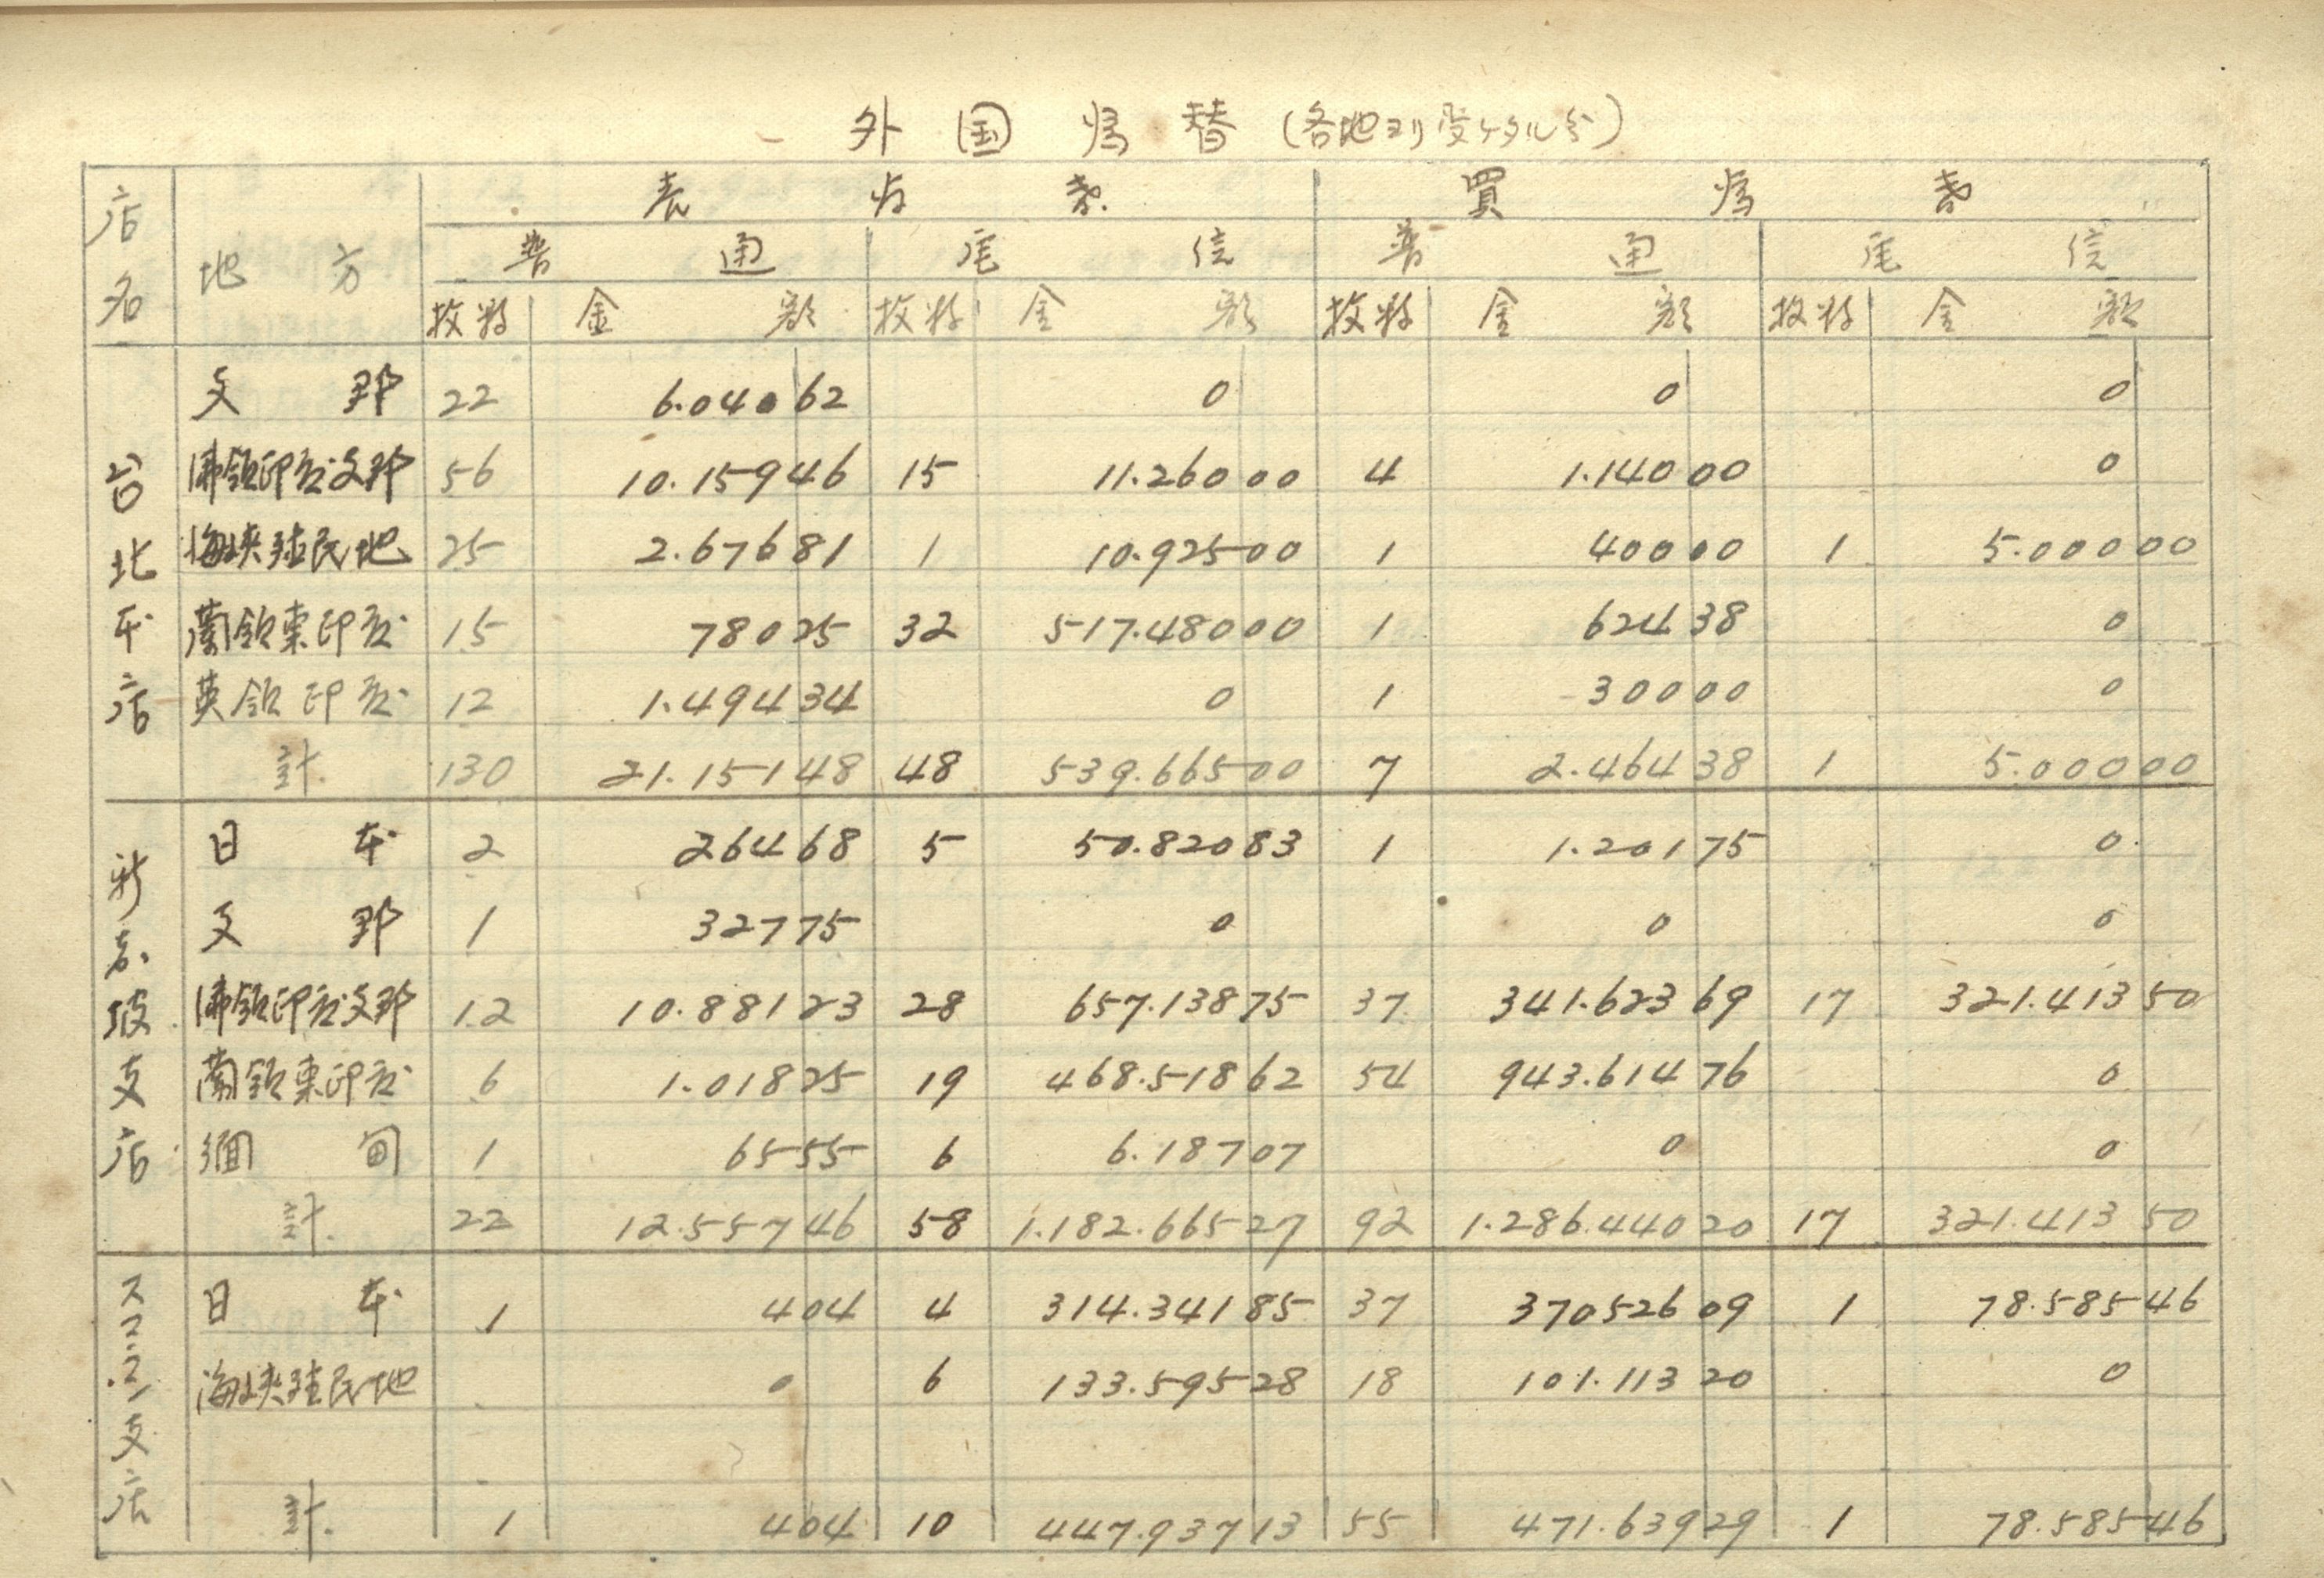 外国為替(各地ヨリ受ケタル分)
店名 地方 賣為替 買為替
普通 電信 普通 電信
枚数 金額 枚数 金額 枚数 金額 枚数 金額
台北本店
支那 22 6.040 62 0 0 0
佛領印度支那 56 10.159 46 15 11.260 00 4 1.140 00 0
海峡殖民地 25 2.676 81 1 10.925 00 1 400 00 1 5.000 00
蘭領東印度 15 780 25 32 517.480 00 1 624 38 0
英領印度 12 1.494 34 0 1 300 00 0
計 130 21.151 48 48 539.665 00 7 2.464 38 1 5.000 00
新嘉坡支店
日本 2 264 68 5 50.820 83 1 1.201 75 0
支那 1 327 75 0 0 0
佛領印度支那 12 10.881 23 28 657.138 75 37 341.623 69 17 321.413 50
蘭領東印度 6 1.018 25 19 468.518 62 54 943.614 76 0
緬甸 1 65 55 6 6.187 07 0 0
計 22 12.557 46 58 1.182.665 27 92 1.286.440 20 17 321.413 50
支店
日本 1 4 04 4 314.341 85 37 370526 09 1 78.585 46
海峡殖民地 0 6 133.595 28 18 101.113 20 0
計 1 4 04 10 447.937 13 55 471.639 29 1 78.585 46